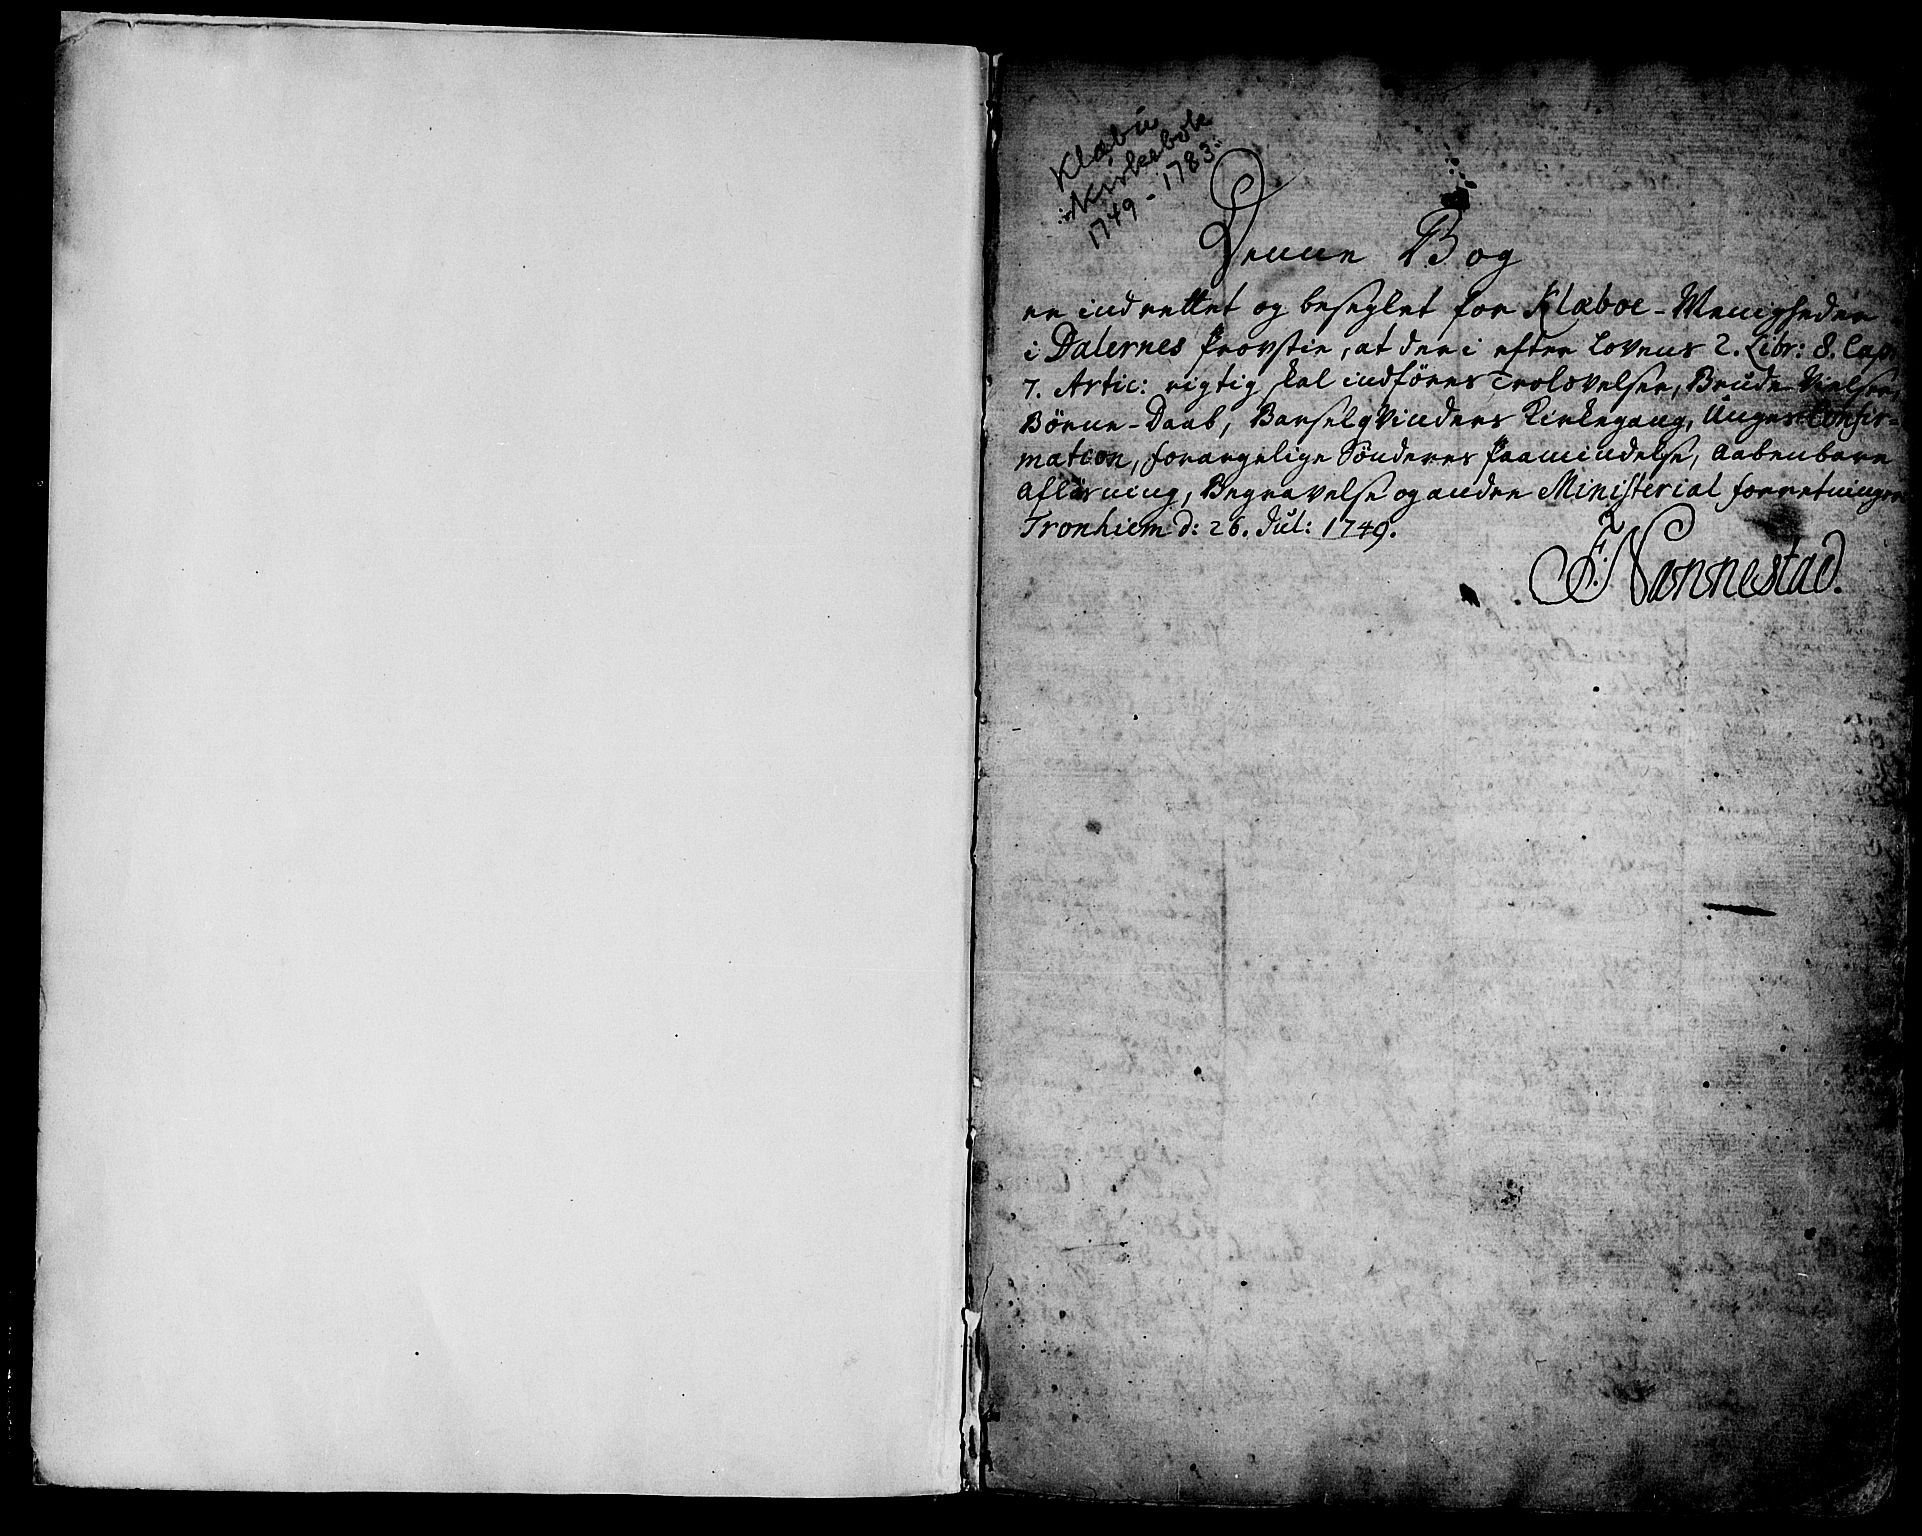 Klæbu
Kirkebok
1749 - 1783
Denne Bog
er indrettet og beseglet for Klæboe-Menigheder
i Dalernes Provstie, at der i efter Lovens 2. Libr: 8. Cap:
7. Artic: rigtig skal indføres Trolovelser, Brude-Vielser,
Børne-Daab, Barselqvinders Kirkegang, Unges Confir=
mation, forargelige Sønderes Paamindelse, Aabenbare
Afløsning, Begravelse og andre Ministerial forretninger.
Tronhiem d: 26. Jul: 1749.
F. Nannestad.